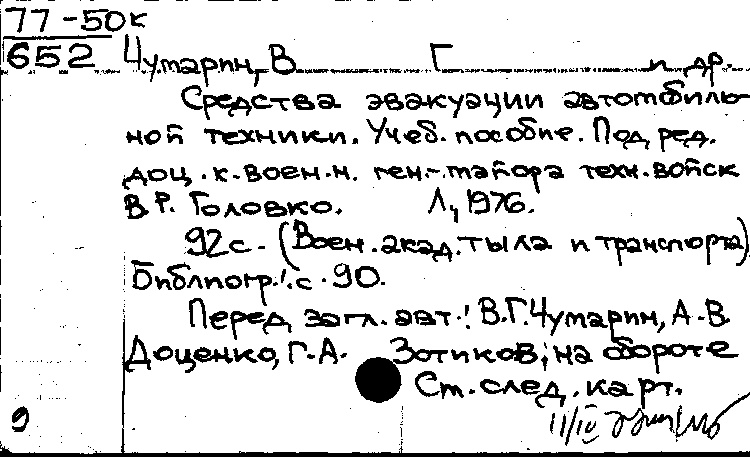 77-50к
652 Чумарин, В Г и др.
Средства эвакуации автомобиль-
ной техники. Учеб. пособие. Под ред.
доц. к. воен. н. ген.-майора техн. войск
В.Р. Головко. Л., 1976.
92с. (Воен. акад. тыла и транспорта)
Библиогр.: с. 90.
Перед загл. авт.: В.Г. Чумарин, А.В.
Доценко, Г.А. Зотиков; на обороте
См. след. карт.
9 11/IV